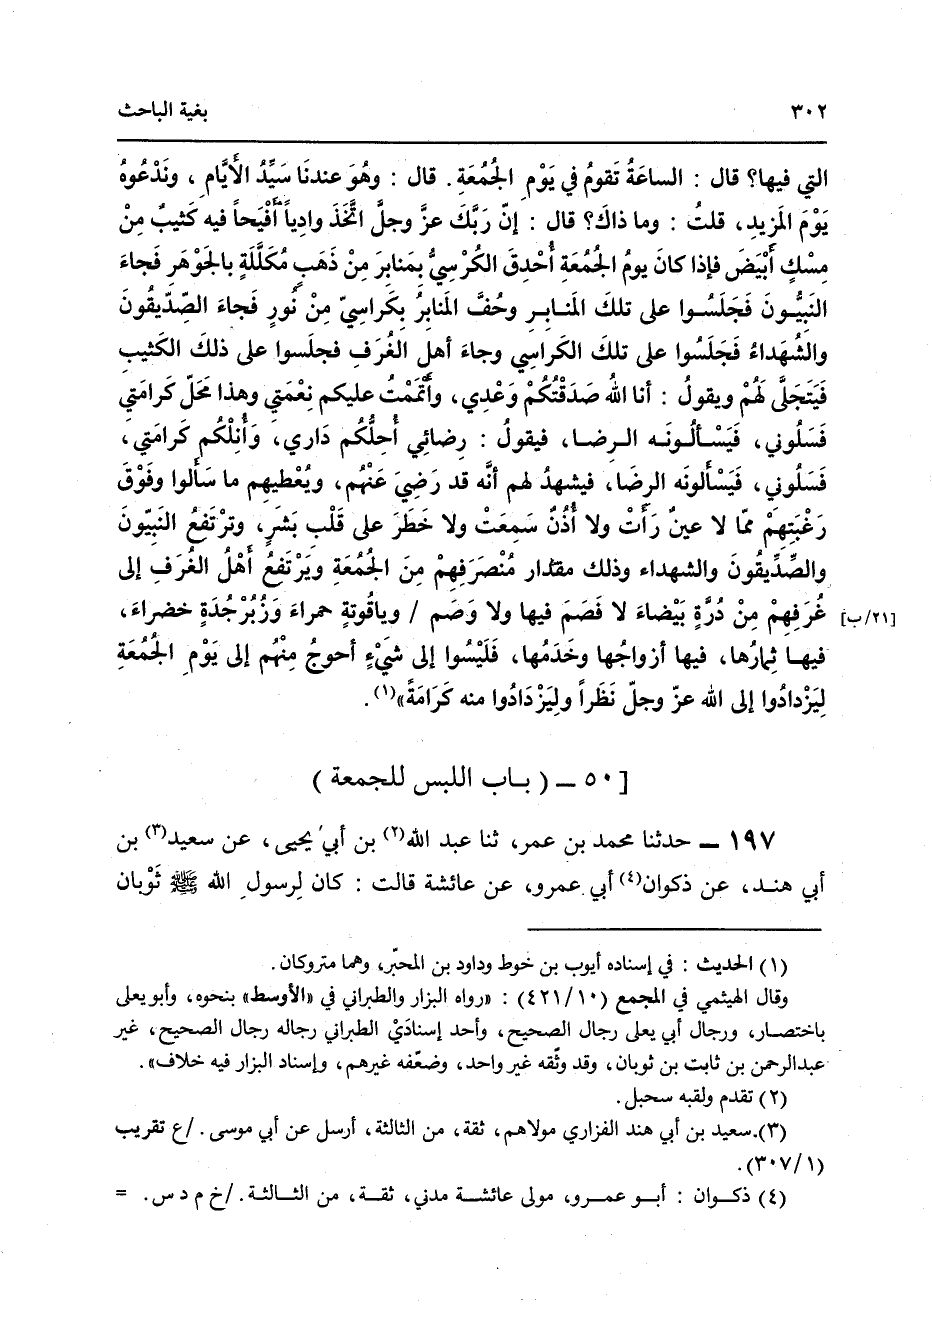 ٣٠٢ بغية الباحث
التي فيها؟ قال : الساعَةُ تَقومُ في يَوْمِ الجُمُعَةِ . قال : وهُوَ عندنَا سَيِّدُ الأيَّامِ ، ونَدْعُوهُ
يَوْمَ المَزيدِ، قلتُ : وما ذاكَ؟ قال : إنّ رَبَّكَ عزَّ وجلَّ اتَّخَذَ وادياً أفْيَحاً فيه كَثيبٌ مِنْ
مِسْكٍ أَبْيَضَ فإذا كانَ يومُ الجُمُعَةِ أُحْدِقَ الكُرْسِيُّ بِمَنابِرَ مِنْ ذَهَبٍ مُكَلَّلَةٍ بالجَوْهَرِ فَجاءَ
النَبيُّونَ فَجَلَسُوا على تلكَ المَنابرِ وحُفَّ المَنابرُ بِكَراسِيّ مِنْ نُورٍ فَجاءَ الصِّدّيقُونَ
والشُهَداءُ فَجَلَسُوا على تلكَ الكَراسِي وجاءَ أهلُ الغُرَفِ فجلَسوا على ذلكَ الكَثيبِ
فَيَتَجَلَّى لَهُمْ ويقولُ : أنا اللهُ صَدَقْتُكُمْ وَعْدِي، وأَتْمَمْتُ عليكم نِعْمَتي وهذا مَحَلّ كَرامَتي
فَسَلُوني، فَيَسْألُونَه الرضا، فيقولُ : رِضائي أُحِلُّكُم دَاري، وَأَنلْكُم كَرامَتي،
فَسَلُوني، فَيَسْألونَه الرِضَا، فيشهدُ لهم أنَّه قد رَضِيَ عَنْهُم، ويُعْطيهِم ما سَأَلوا وفَوْقَ
رَغْبَتِهِمْ ممّا لا عينٌ رَأَتْ ولا أُذُنٌ سَمِعَتْ ولا خَطَرَ على قَلْبِ بَشَرٍ، وترْتَفعُ النَبيّونَ
والصِّدِّيقُونَ والشهداء وذلك مقدار مُنْصَرَفِهِمْ مِنَ الجُمُعَةِ ويَرْتَفعُ أَهْلُ الغُرَفِ إلى
غُرَفِهِمْ مِنْ دُرَّةٍ بَيْضاءَ لا فَصَمَ فيها ولا وَصَم / وياقُوتةٍ حمراءَ وَزُبُرْجُدَةٍ خضراءَ، [٢١/ب]
فيها ثِمارُها، فيها أزواجُها وخَدَمُها، فَلَيْسُوا إلى شَيْءٍ أحوجُ مِنْهُم إلى يَوْمِ الجُمُعَةِ
لِيَزْدادُوا إلى الله عزّ وجلّ نَظَراً ولِيَزْدَادُوا منه كَرَامَةً»(١).
[٥٠ ـ (باب اللبس للجمعة)
١٩٧ ـ حدثنا محمد بن عمر، ثنا عبد الله(٢) بن أبي يحيى، عن سعيد(٣) بن
أبي هند، عن ذكوان(٤) أبي عمرو، عن عائشة قالت : كان لِرسولِ الله ﷺ ثَوْبان
(١) الحديث : في إسناده أيوب بن خوط وداود بن المحبّر، وهما متروكان.
وقال الهيثمي في المجمع (٤٢١/١٠) : «رواه البزار والطبراني في «الأوسط» بنحوه، وأبو يعلى
باختصار، ورجال أبي يعلى رجال الصحيح، وأحد إسنادَيْ الطبراني رجاله رجال الصحيح، غير
عبدالرحمن بن ثابت بن ثوبان، وقد وثّقه غير واحد، وضعّفه غيرهم، وإسناد البزار فيه خلاف».
(٢) تقدم ولقبه سحبل.
(٣) سعيد بن أبي هند الفزاري مولاهم، ثقة، من الثالثة، أرسل عن أبي موسى. /ع تقريب
(٣٠٧/١).
(٤) ذكوان : أبو عمرو، مولى عائشة مدني، ثقة، من الثالثة. /خ م د س. =